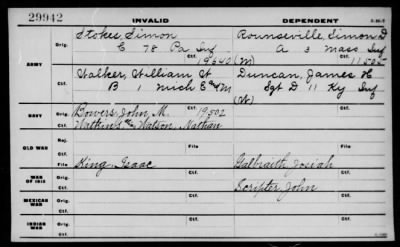 29942 INVALID DEPENDENT
Stokes, Simon Rounseville, Simon D
Orig. C 78 Pa Inf A 3 Mass Inf
Ctf. 19640 (M) Ctf.
ARMY
Walker, William H Duncan, James H
Ctf. B 1 Mich Sgt D 11 Ky Inf
NAVY Orig. Bowers, John M. Ctf. 19502 Orig. Ctf.
Ctf. Watson, Nathan
OLD WAR Rej.
File File
WAR OF 1812 Orig. King, Isaac Galbraith, Josiah
Ctf. Scripter, John
MEXICAN WAR Orig. Ctf. Ctf.
Ctf.
INDIAN WAR Orig. Ctf. Ctf.
Ctf.